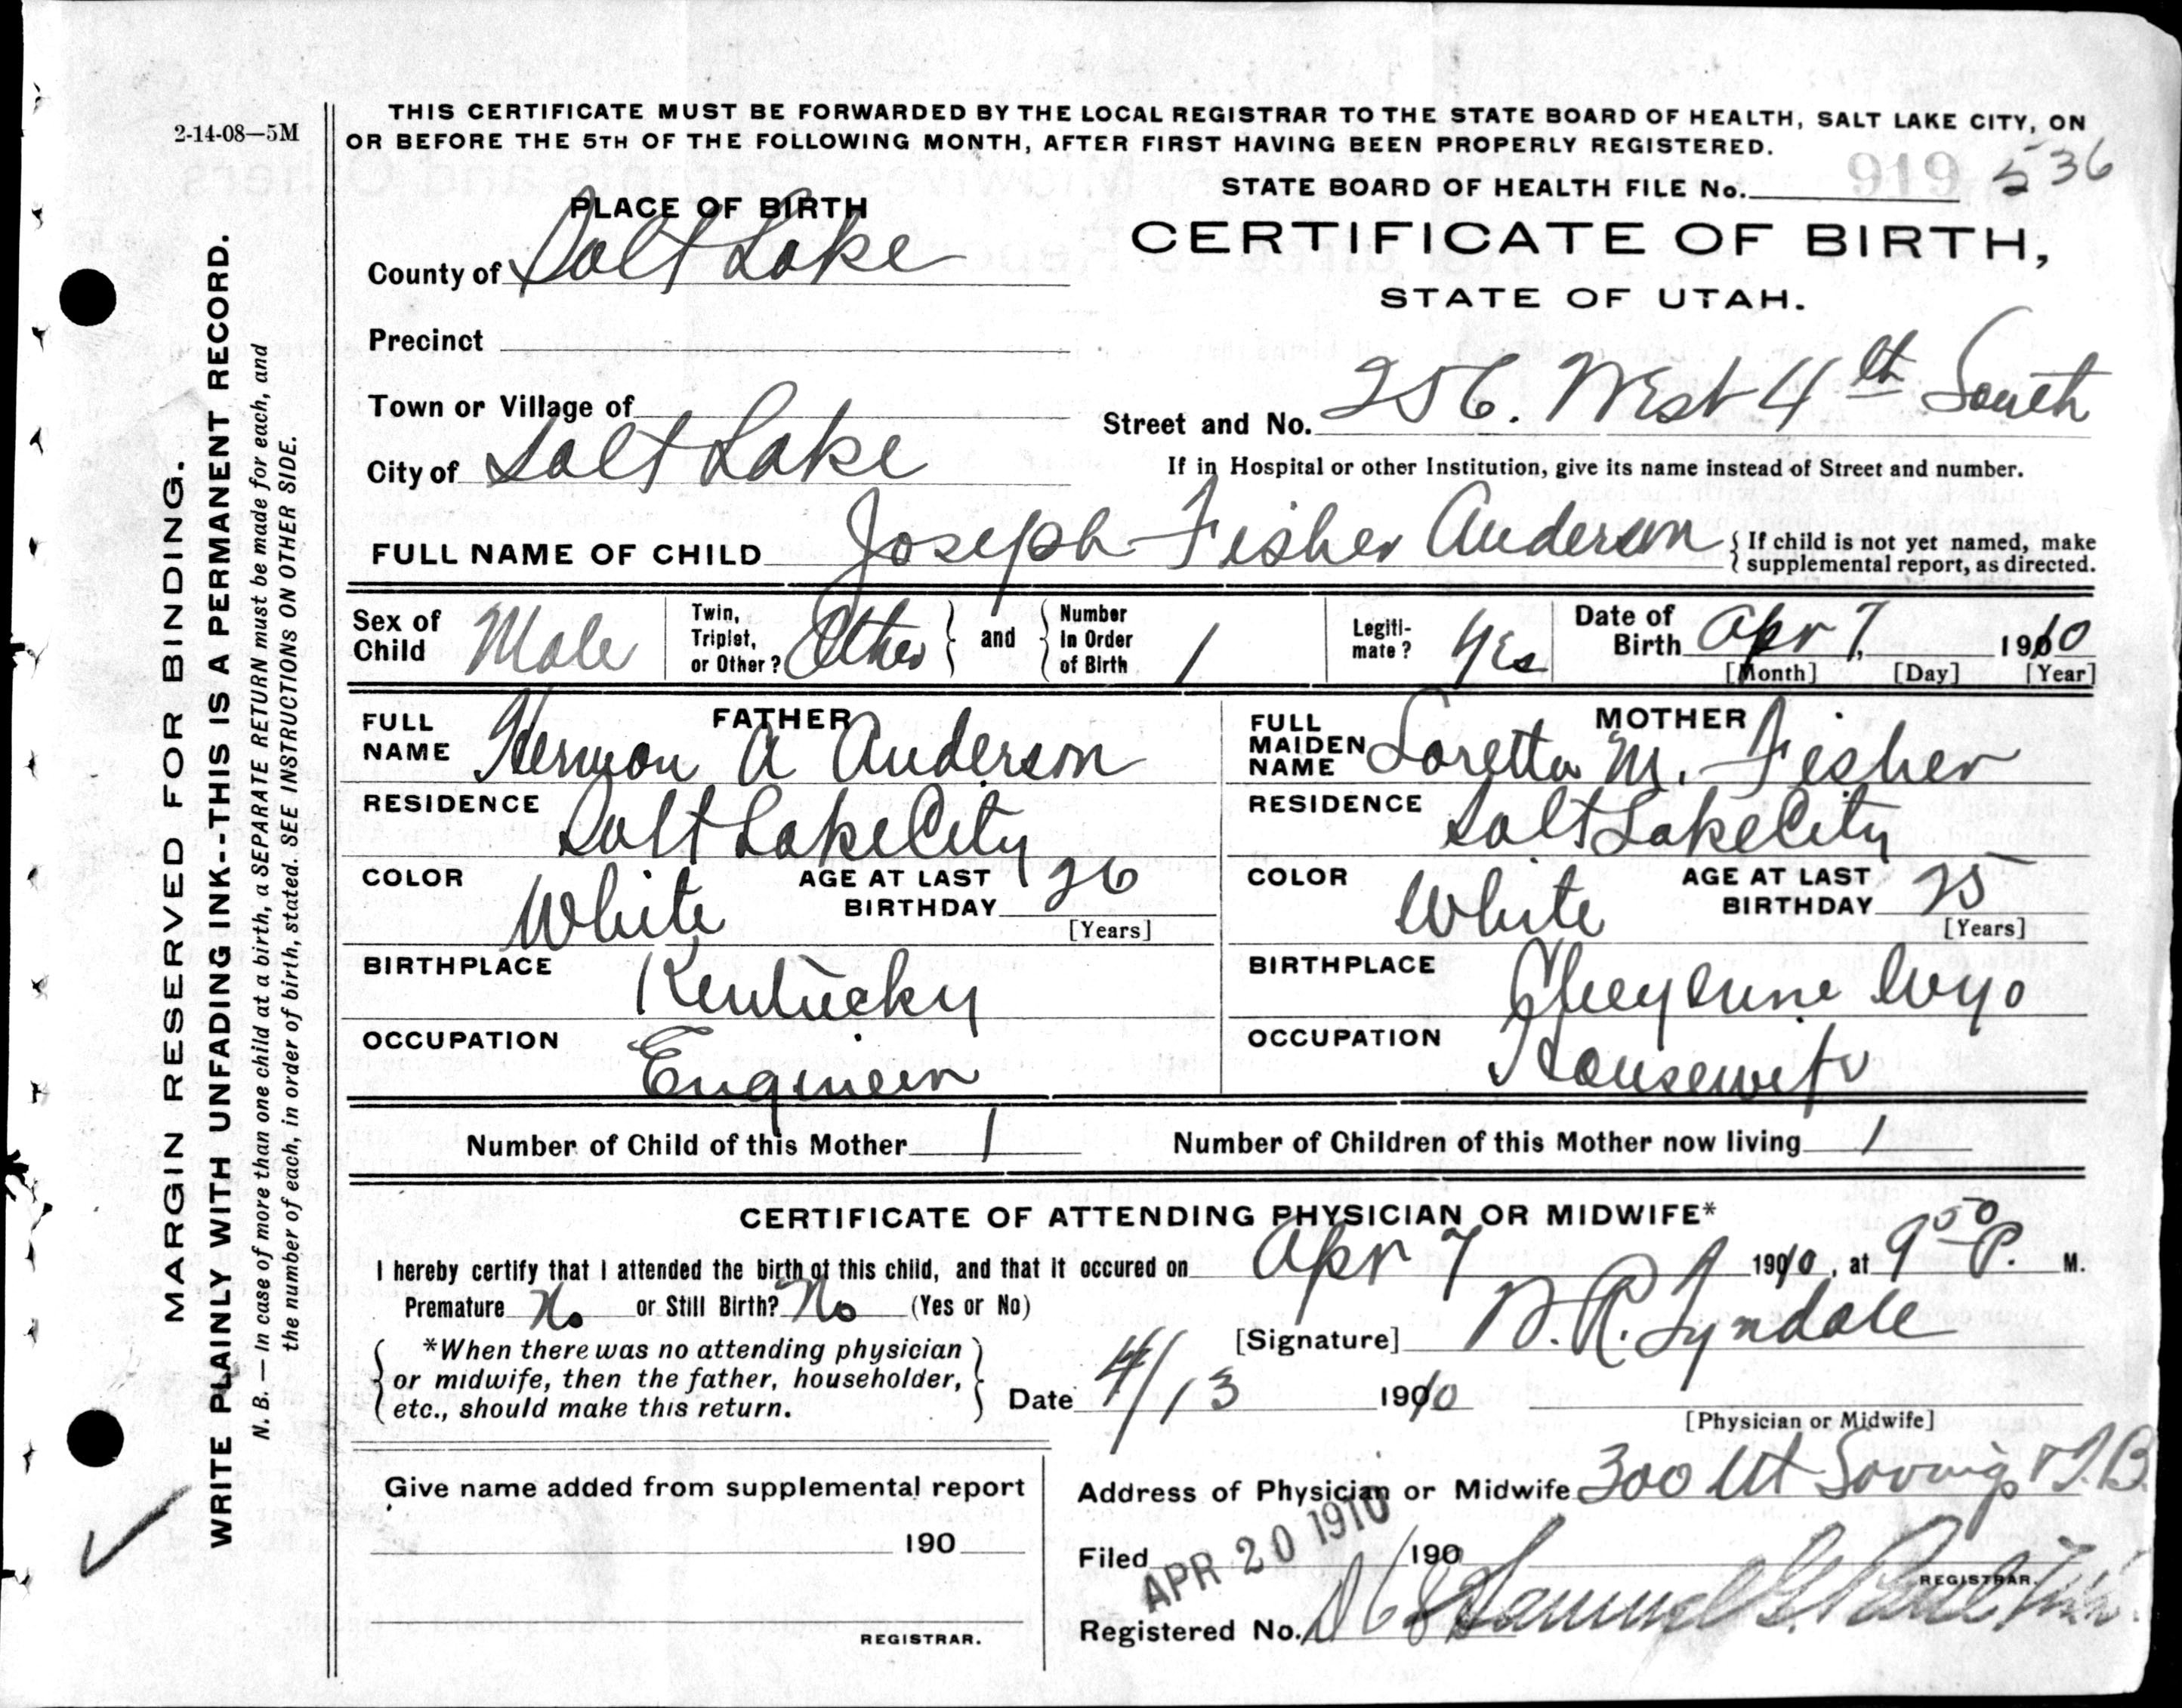 2-14-08—5M
THIS CERTIFICATE MUST BE FORWARDED BY THE LOCAL REGISTRAR TO THE STATE BOARD OF HEALTH, SALT LAKE CITY, ON
OR BEFORE THE 5TH OF THE FOLLOWING MONTH, AFTER FIRST HAVING BEEN PROPERLY REGISTERED.
STATE BOARD OF HEALTH FILE No. 919 536
PLACE OF BIRTH
CERTIFICATE OF BIRTH,
STATE OF UTAH.
County of Salt Lake
Precinct
Town or Village of
Street and No. 256. West 4th South
City of Salt Lake
If in Hospital or other Institution, give its name instead of Street and number.
FULL NAME OF CHILD Joseph Fisher Anderson { If child is not yet named, make
supplemental report, as directed.
Sex of Child Male
Twin, Triplet, or Other? Other } and { Number In Order of Birth 1
Legiti-mate? Yes
Date of Birth Apr 7, 1910
[Month] [Day] [Year]
FATHER
FULL NAME Hermon A Anderson
RESIDENCE Salt Lake City
COLOR White AGE AT LAST BIRTHDAY 26
[Years]
BIRTHPLACE Kentucky
OCCUPATION Engineer
MOTHER
FULL MAIDEN NAME Loretta M. Fisher
RESIDENCE Salt Lake City
COLOR White AGE AT LAST BIRTHDAY 25
[Years]
BIRTHPLACE Cheyenne Wyo
OCCUPATION Housewife
Number of Child of this Mother 1 Number of Children of this Mother now living 1
CERTIFICATE OF ATTENDING PHYSICIAN OR MIDWIFE*
I hereby certify that I attended the birth of this child, and that it occured on Apr 7 1910, at 9 50 P. M.
Premature No or Still Birth? No (Yes or No)
{ *When there was no attending physician
or midwife, then the father, householder,
etc., should make this return. }
[Signature] N. R. Tyndale
Date 4/13 1910
[Physician or Midwife]
Give name added from supplemental report
190
REGISTRAR.
Address of Physician or Midwife 300 Ut Savings & T. B.
Filed APR 20 1910 190
REGISTRAR.
Registered No. Samuel G. Paul
MARGIN RESERVED FOR BINDING.
WRITE PLAINLY WITH UNFADING INK--THIS IS A PERMANENT RECORD.
N. B. — In case of more than one child at a birth, a SEPARATE RETURN must be made for each, and
the number of each, in order of birth, stated. SEE INSTRUCTIONS ON OTHER SIDE.